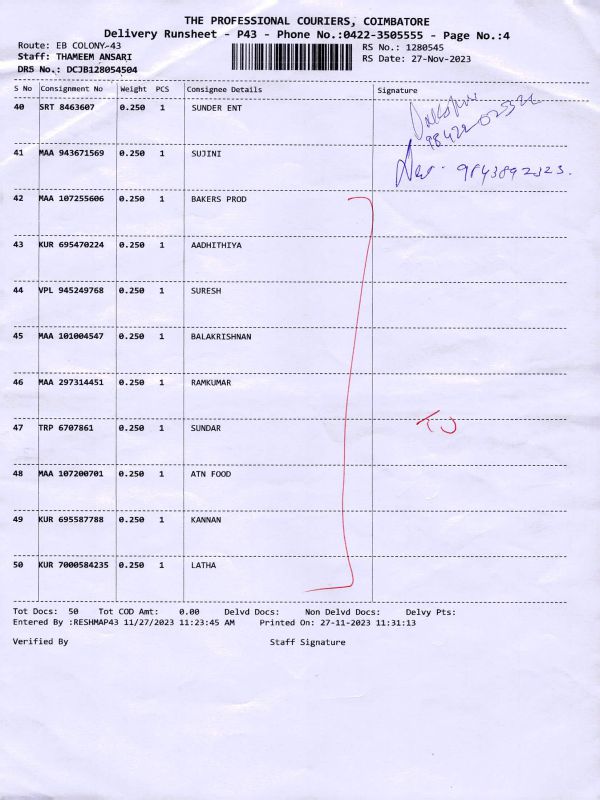 THE PROFESSIONAL COURIERS, COIMBATORE
Delivery Runsheet - P43 - Phone No.:0422-3505555 - Page No.:4
Route: EB COLONY-43 RS No.: 1280545
Staff: THAMEEM ANSARI RS Date: 27-Nov-2023
DRS No.: DCJB128054504
S No Consignment No Weight PCS Consignee Details Signature
40 SRT 8463607 0.250 1 SUNDER ENT
41 MAA 943671569 0.250 1 SUJINI
42 MAA 107255606 0.250 1 BAKERS PROD
43 KUR 695470224 0.250 1 AADHITHIYA
44 VPL 945249768 0.250 1 SURESH
45 MAA 101004547 0.250 1 BALAKRISHNAN
46 MAA 297314451 0.250 1 RAMKUMAR
47 TRP 6707861 0.250 1 SUNDAR
48 MAA 107200701 0.250 1 ATN FOOD
49 KUR 695587788 0.250 1 KANNAN
50 KUR 7000584235 0.250 1 LATHA
Tot Docs: 50 Tot COD Amt: 0.00 Delvd Docs: Non Delvd Docs: Delvy Pts:
Entered By :RESHMAP43 11/27/2023 11:23:45 AM Printed On: 27-11-2023 11:31:13
Verified By Staff Signature